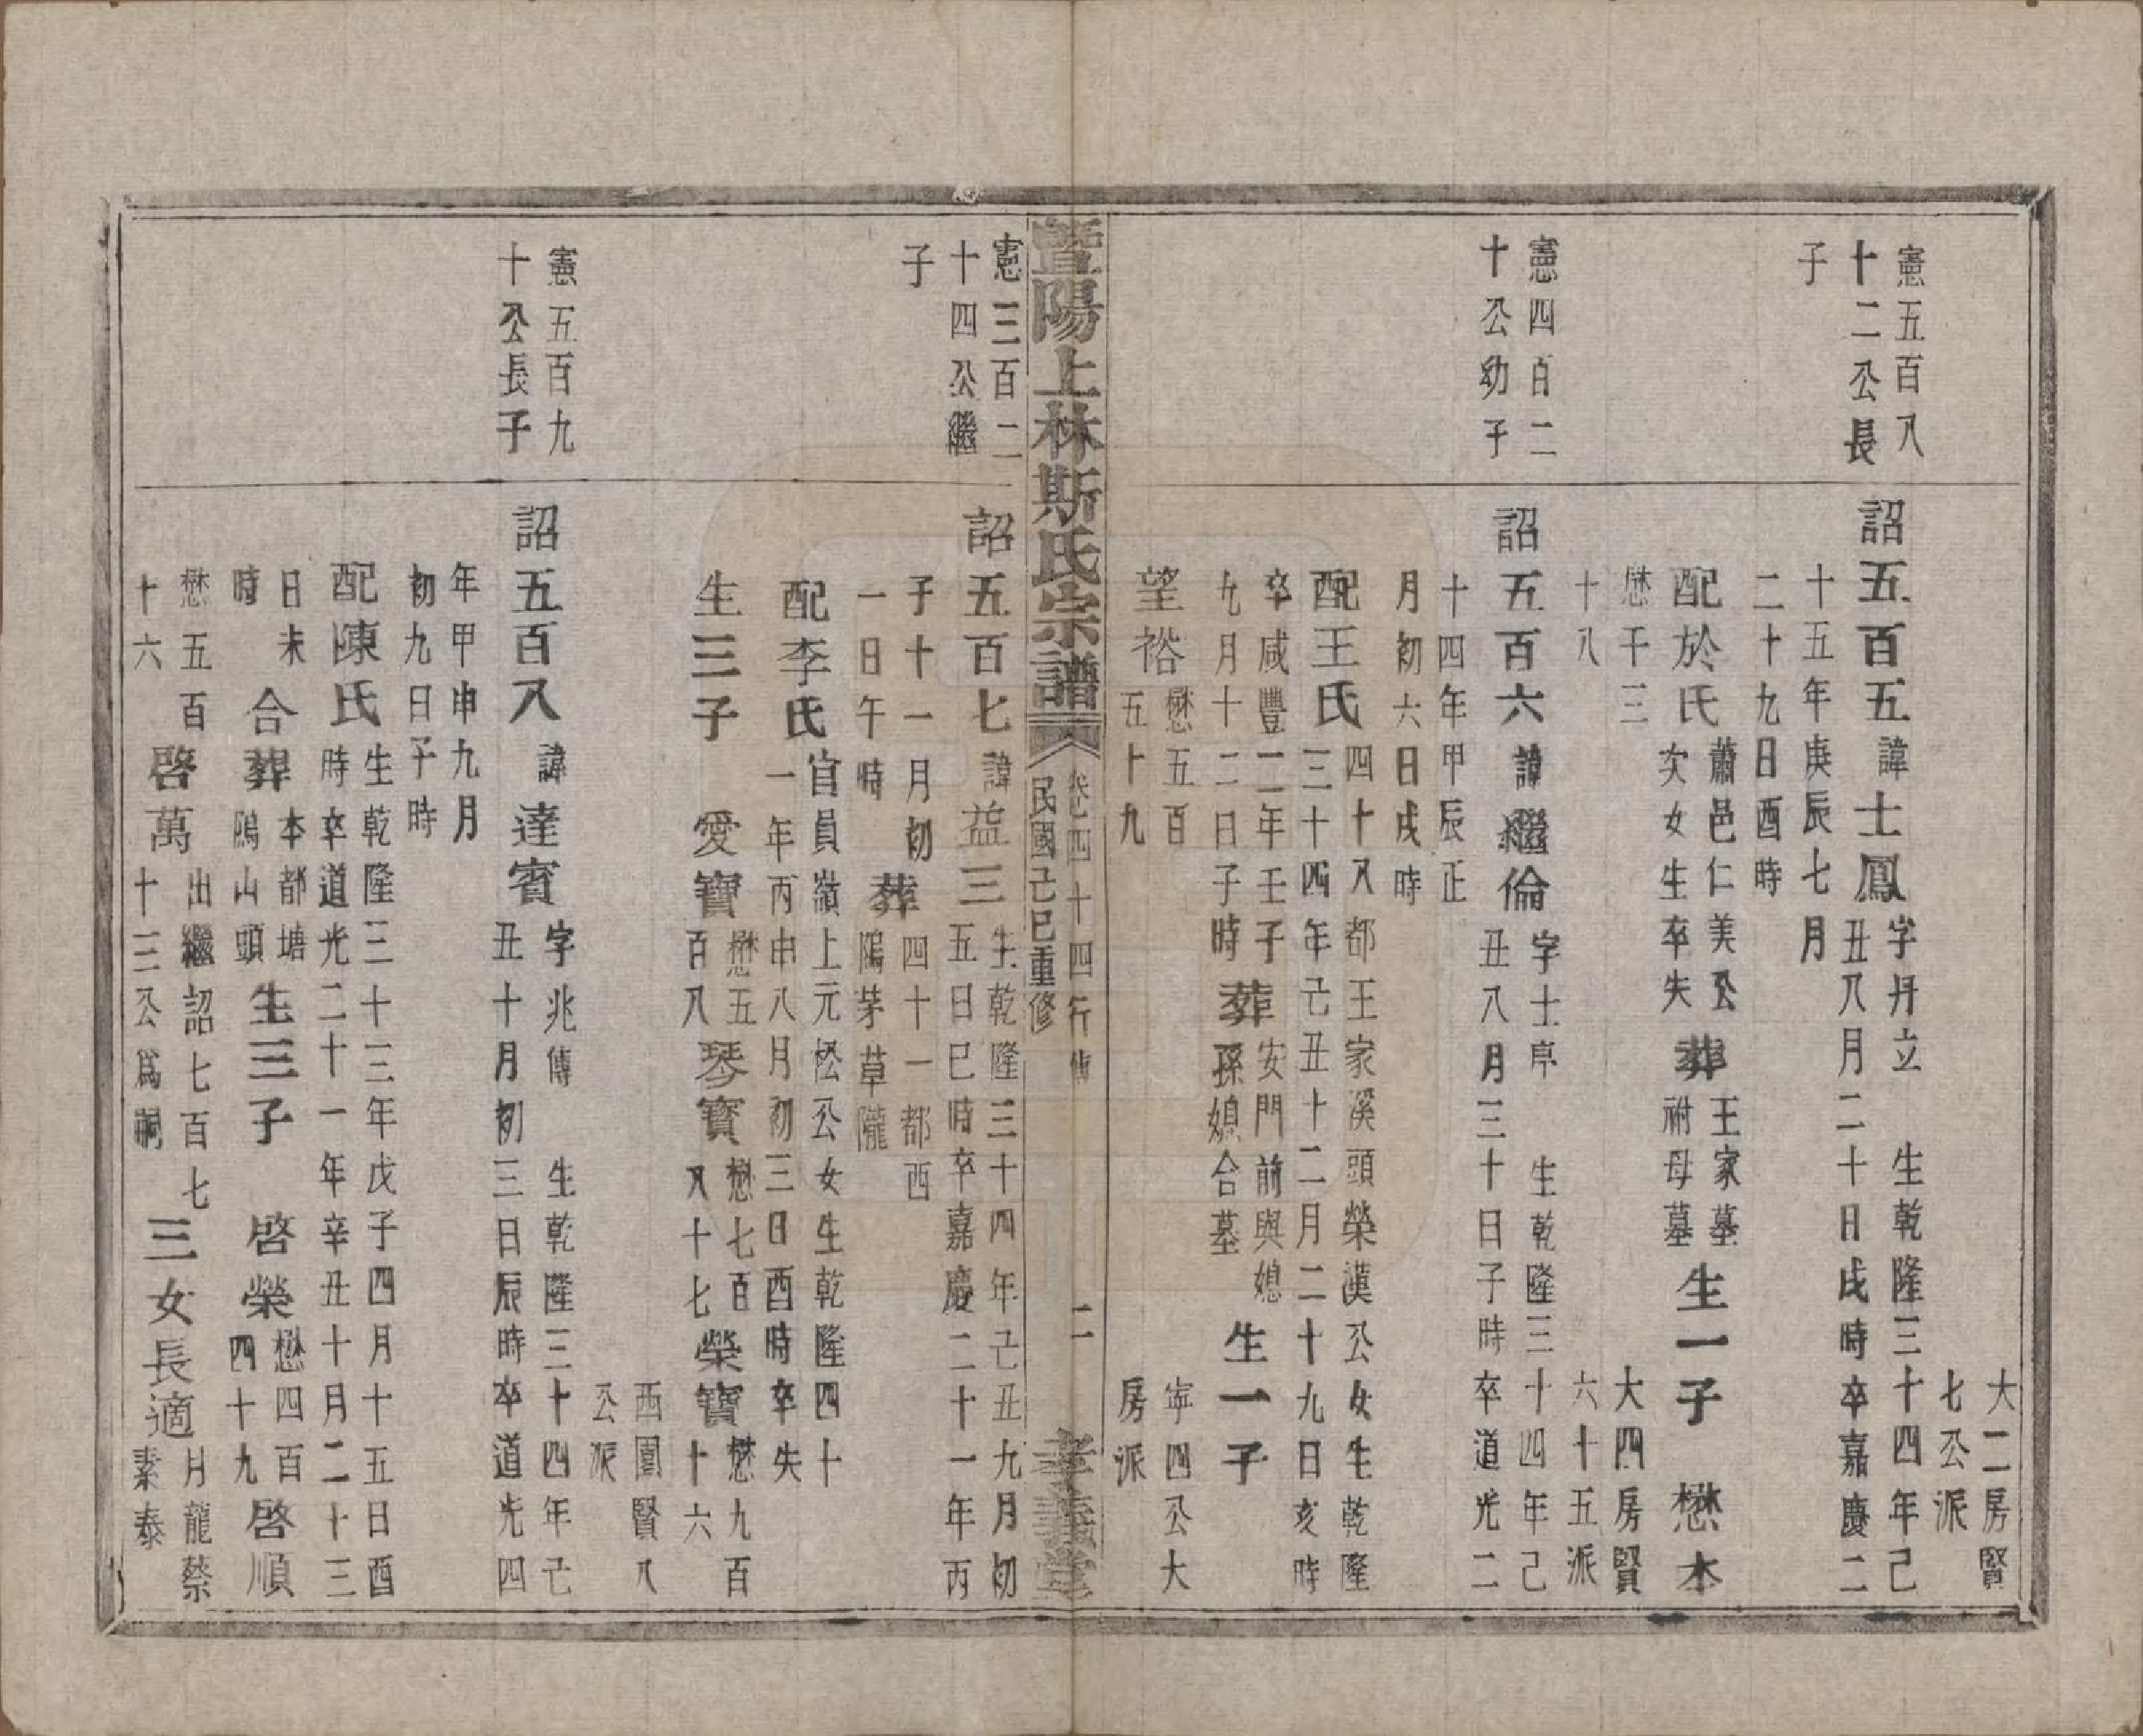 大二房賢
七公派
憲五百八
十二公長
子
詔五百五
諱士鳳
字丹立 生乾隆三十四年己
丑八月二十日戌時卒嘉慶二
十五年庚辰七月
二十九日酉時
配於氏
蕭邑仁美公
次女生卒失
葬
王家墓
祔母墓
生一子 懋本
懋千三
十八
大四房賢
六十五派
憲四百二
十公幼子
詔五百六
諱繼倫
字士亭 生乾隆三十四年己
丑八月三十日子時卒道光二
十四年甲辰正
月初六日戌時
配王氏
四十八都王家溪頭榮漢公女生乾隆
三十四年己丑十二月二十九日亥時
卒咸豐二年壬子
九月十二日子時
葬
安門前與媳
孫媳合墓
生一子
望裕
懋五百
五十九
寧四公大
房派
暨陽上林斯氏宗譜
卷四十四行傳
民國己巳重修
二
孝義堂
憲三百二
十四公繼
子
詔五百七
諱益三
生乾隆三十四年己丑九月初
五日巳時卒嘉慶二十一年丙
子十一月初
一日午時
葬
四十一都西
隖茅草隴
配李氏
官員嶺上元松公女生乾隆四十
一年丙申八月初三日酉時卒失
生三子
愛寶
懋五
百八
琴寶
懋七百
八十七
榮寶
懋九百
十六
西園賢八
公派
憲五百九
十公長子
詔五百八
諱達賓
字兆傳 生乾隆三十四年己
丑十月初三日辰時卒道光四
年甲申九月
初九日子時
配陳氏
生乾隆三十三年戊子四月十五日酉
時卒道光二十一年辛丑十月二十三
日未
時
合葬
本都塘
隖山頭
生三子
啓榮
懋四百
四十九
啓順
懋五百
十六
啓萬
出繼詔七百七
十三公爲嗣
三女長適
月龍蔡
素泰